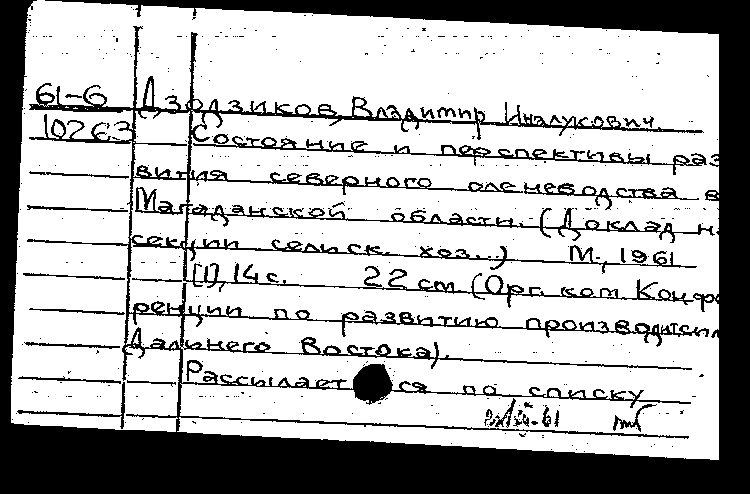 61-6 Дзодзиков, Владимир Иналукович.
10263 Состояние и перспективы раз
вития северного оленеводства в
Магаданской области. (Доклад н
секции сельск. хоз...) М., 1961
[1], 14 с. 22 см (Орг. ком. Конфе
ренции по развитию производител
Дальнего Востока).
Рассылается по списку